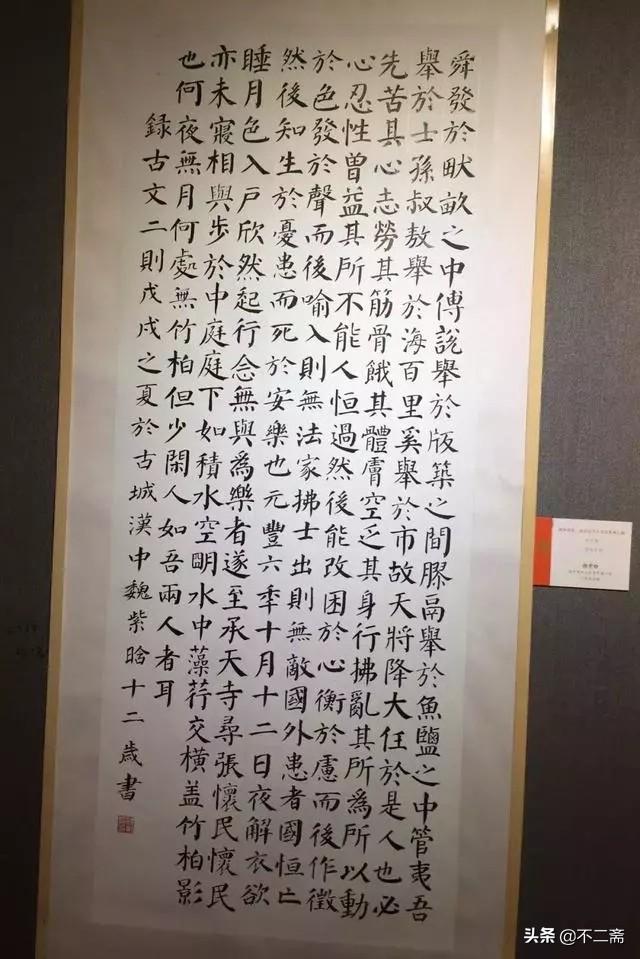 舜發於畎畝之中傅說舉於版築之間膠鬲舉於魚鹽之中管夷吾
舉於士孫叔敖舉於海百里奚舉於市故天將降大任於是人也必
先苦其心志勞其筋骨餓其體膚空乏其身行拂亂其所為所以動
心忍性曾益其所不能人恒過然後能改困於心衡於慮而後作徵
於色發於聲而後喻入則無法家拂士出則無敵國外患者國恒亡
然後知生於憂患而死於安樂也元豐六秊十月十二日夜解衣欲
睡月色入戶欣然起行念無與為樂者遂至承天寺尋張懷民懷民
亦未寢相與步於中庭庭下如積水空明水中藻荇交橫盖竹柏影
也何夜無月何處無竹柏但少閑人如吾兩人者耳
錄古文二則戊戌之夏於古城漢中魏紫晗十二歲書
头条@不二斋